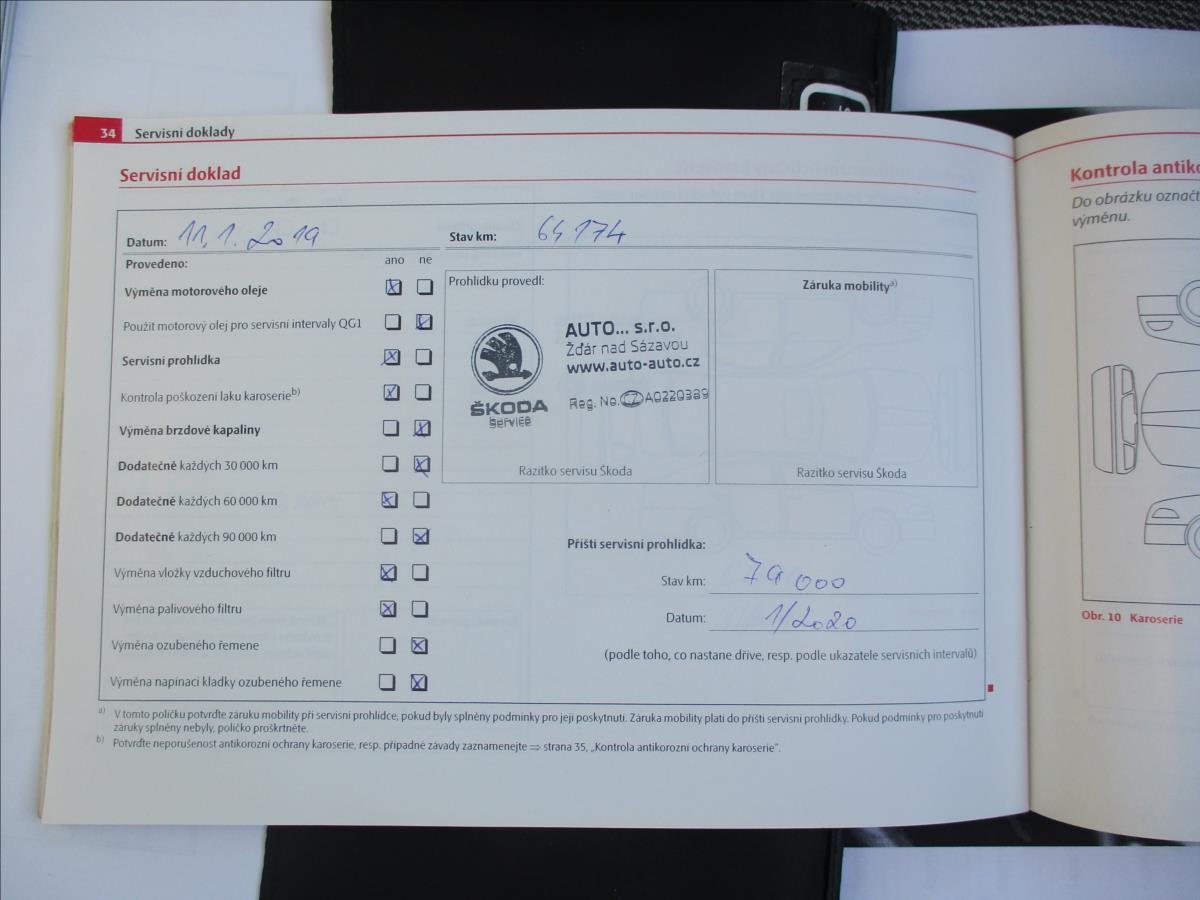 34 Servisní doklady
Servisní doklad
Datum: 11. 1. 2019
Stav km: 64174
Provedeno: ano ne
Výměna motorového oleje
Použit motorový olej pro servisní intervaly QG1
Servisní prohlídka
Kontrola poškození laku karoserie b)
Výměna brzdové kapaliny
Dodatečně každých 30 000 km
Dodatečně každých 60 000 km
Dodatečně každých 90 000 km
Výměna vložky vzduchového filtru
Výměna palivového filtru
Výměna ozubeného řemene
Výměna napínací kladky ozubeného řemene
Prohlídku provedl:
AUTO... s.r.o.
Žďár nad Sázavou
www.auto-auto.cz
Reg. No. CZ A0220389
ŠKODA
Service
Razítko servisu Škoda
Záruka mobility a)
Razítko servisu Škoda
Příští servisní prohlídka:
Stav km: 79 000
Datum: 1/2020
(podle toho, co nastane dříve, resp. podle ukazatele servisních intervalů)
a) V tomto políčku potvrďte záruku mobility při servisní prohlídce, pokud byly splněny podmínky pro její poskytnutí. Záruka mobility platí do příští servisní prohlídky. Pokud podmínky pro poskytnutí
záruky splněny nebyly, políčko proškrtněte.
b) Potvrďte neporušenost antikorozní ochrany karoserie, resp. případné závady zaznamenejte ⇒ strana 35, „Kontrola antikorozní ochrany karoserie".
Kontrola antiko
Do obrázku označt
výměnu.
Obr. 10 Karoserie